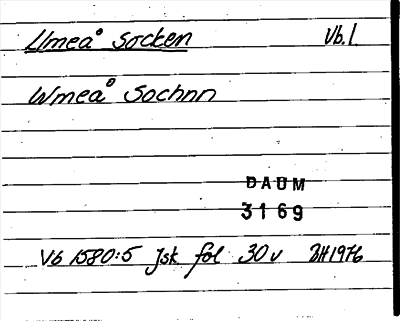 Umeå socken Vb.l.
Wmeå Sochnn
DAUM
3169
Vb 1580:5 Jsk fol 30v BH1976